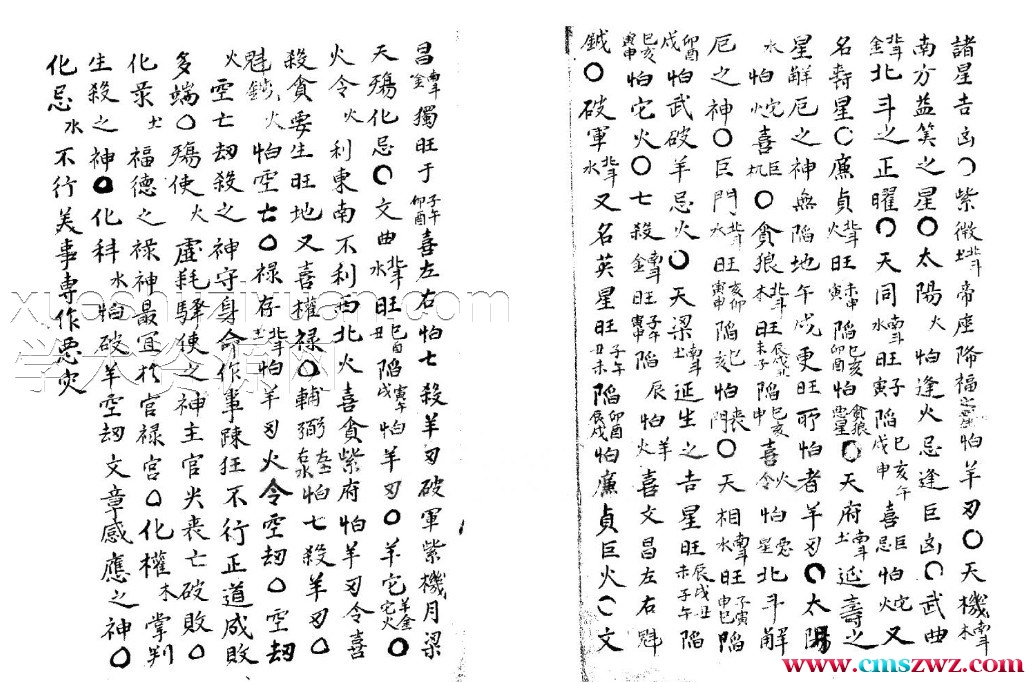 諸星吉凶〇紫微北斗土帝座降福之星怕羊刃〇天機南斗木
南方益筭之星〇太陽火怕逢火忌逢巨凶〇武曲
北斗金北斗之正曜〇天同水南斗旺子寅陷巳亥午戌申喜巨忌怕火陀又
名壽星〇廉貞北斗火旺未申寅陷巳亥卯酉怕貪狼惡星〇天府南斗土延壽之
星解厄之神無陷地午戌更旺所怕者羊刃〇太陽
水怕陀喜巨机〇貪狼北斗木旺辰戌丑未子陷巳亥申喜火令怕惡星北斗解
厄之神〇巨門北斗水旺亥卯寅申陷巳亥怕喪門〇天相南斗水旺子寅申巳陷
卯酉戌怕武破羊忌火〇天梁南斗土延生之吉星旺辰戌丑未子午陷
巳亥寅申怕它火〇七殺南斗金旺子午寅申陷辰怕火羊喜文昌左右魁
鉞〇破軍北斗水又名英星旺子午丑未陷卯酉辰戌怕廉貞巨火〇文
昌南斗金獨旺于子午卯酉喜左右怕七殺羊刃破軍紫機月梁
天殤化忌〇文曲北斗水旺巳酉丑陷寅午戌怕羊刃〇羊它羊金它火〇
火令火利東南不利西北火喜貪紫府怕羊刃令喜
殺貪要生旺地又喜權祿〇輔弼左土右水怕七殺羊刃〇
魁鉞火怕空亡〇禄存北斗土怕羊刃火令空刧〇空刧
火空亡刧殺之神守身命作事踈狂不行正道成敗
多端〇殤使火虛耗驛使之神主官災喪亡破敗〇
化录土福德之禄神最宜於官禄宮〇化權木掌判
生殺之神〇化科水怕破羊空刧文章感應之神〇
化忌水不行美事專作惡灾
xueshuziyuan.com
学术资源网
www.cmszwz.com